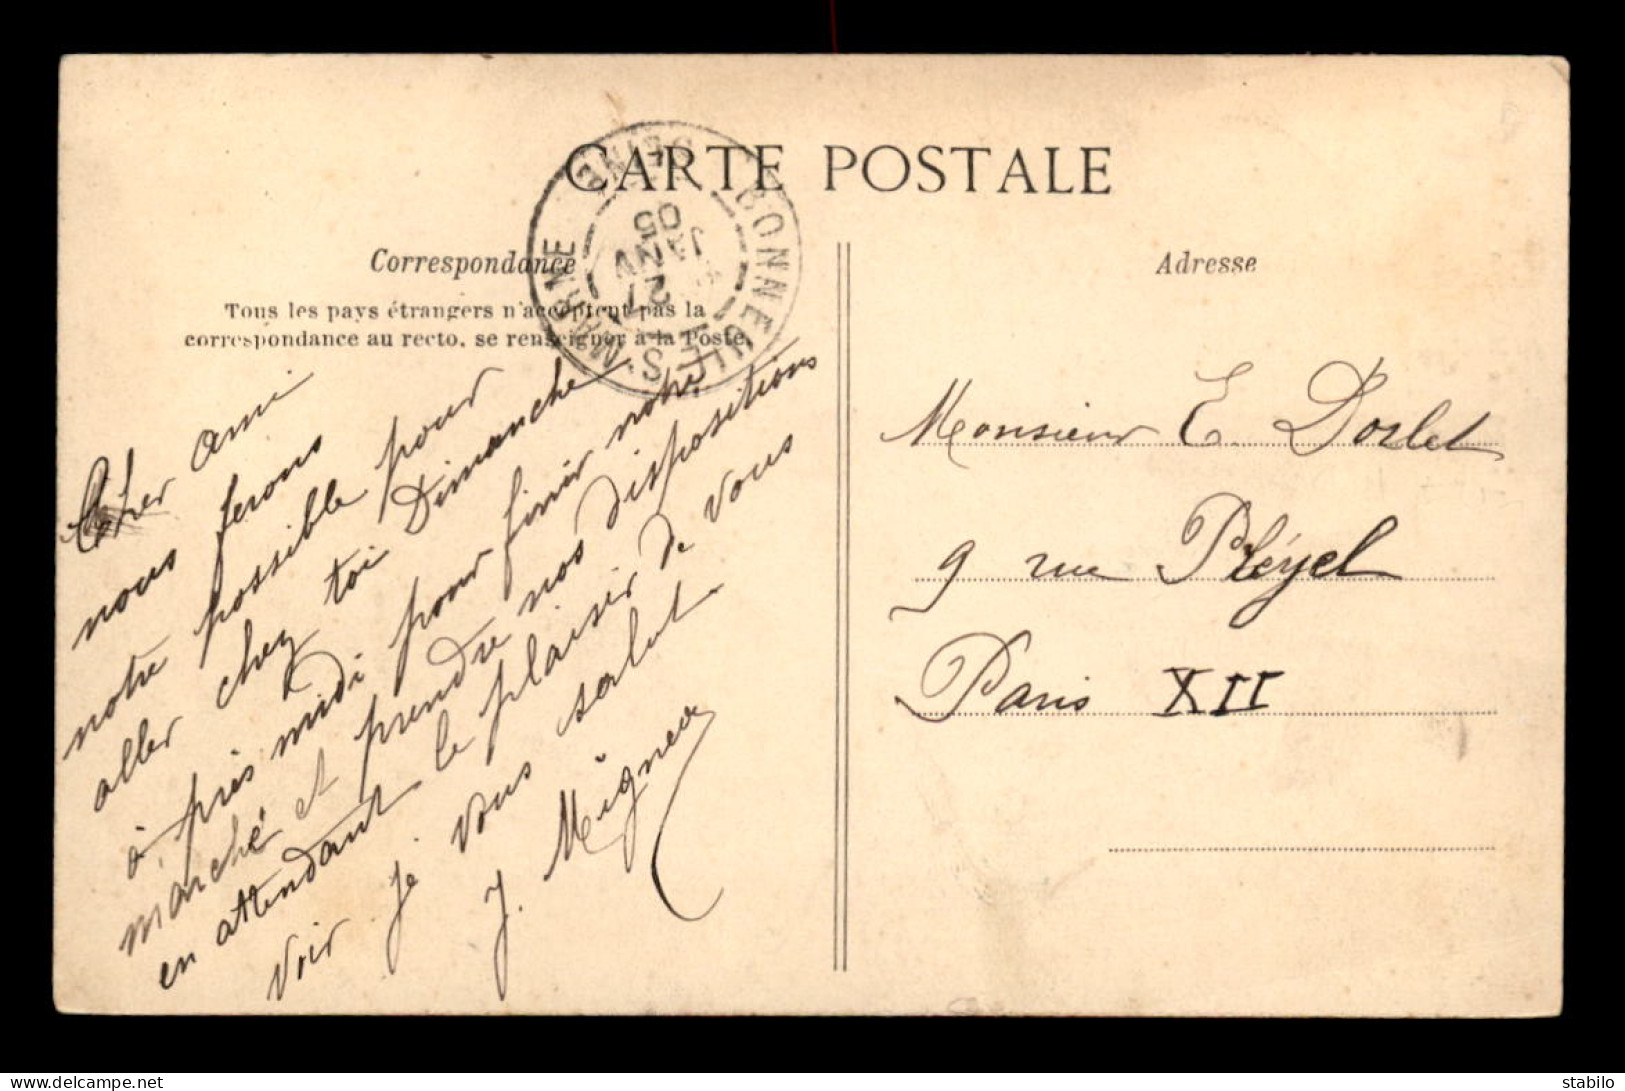 CARTE POSTALE
Correspondance
Tous les pays étrangers n'acceptent pas la
correspondance au recto, se renseigner à la Poste.
BONNEUIL-S-MARNE SEINE
21
JANV
05
Cher ami
nous ferons
notre possible pour
aller chez toi Dimanche
à près midi pour finir notre
marché et prendre nos dispositions
en attendant le plaisir de vous
voir je vous salut
J.
Adresse
Monsieur E. Dorlet
9 rue Pléyel
Paris XII
delcampe.net
stabilo